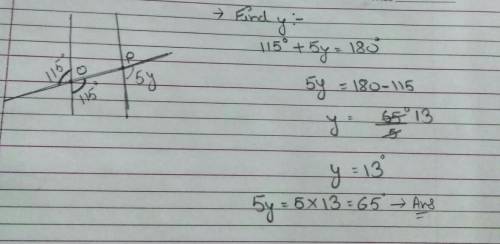 → Find y :-
115° + 5y = 180°
5y = 180 - 115
y = 65° 13
5
y = 13°
5y = 5 × 13 = 65° → Ans
115° O
115°
P
5y